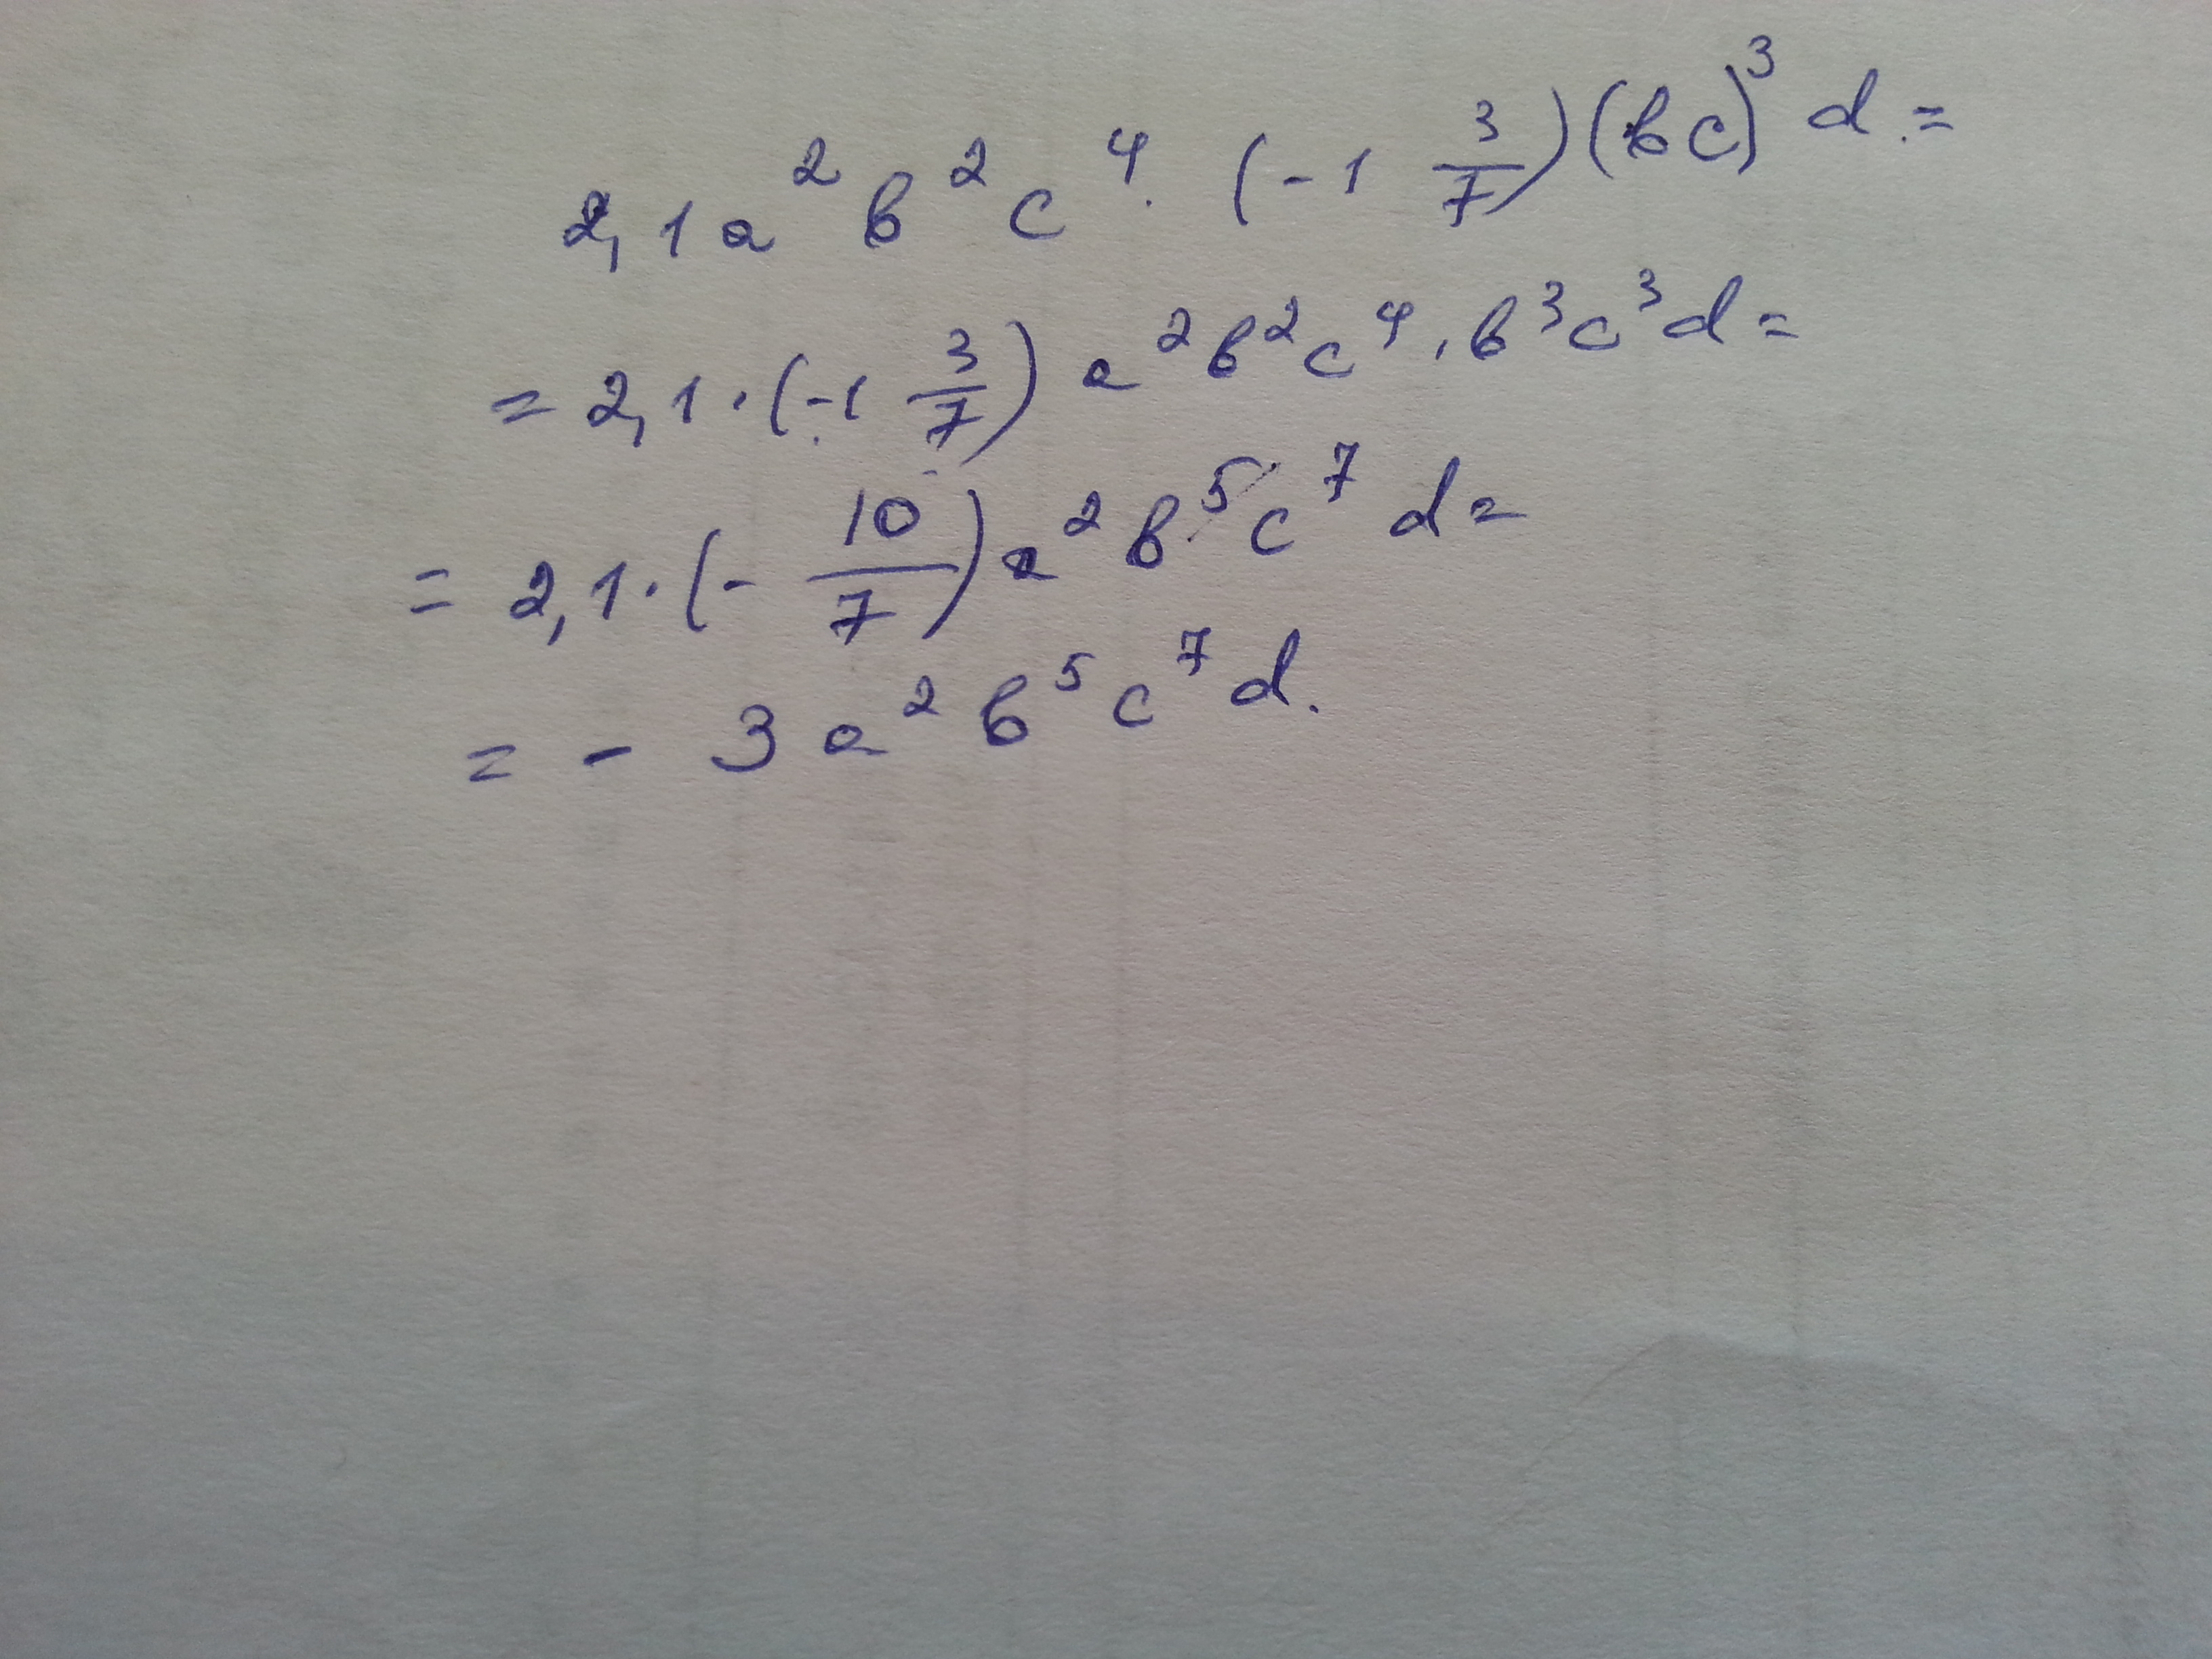 2,1a²b²c⁴·(-1 3/7)(bc)³d.=
=2,1·(-1 3/7)a²b²c⁴·b³c³d=
=2,1·(-10/7)a²b⁵c⁷d=
=-3a²b⁵c⁷d.